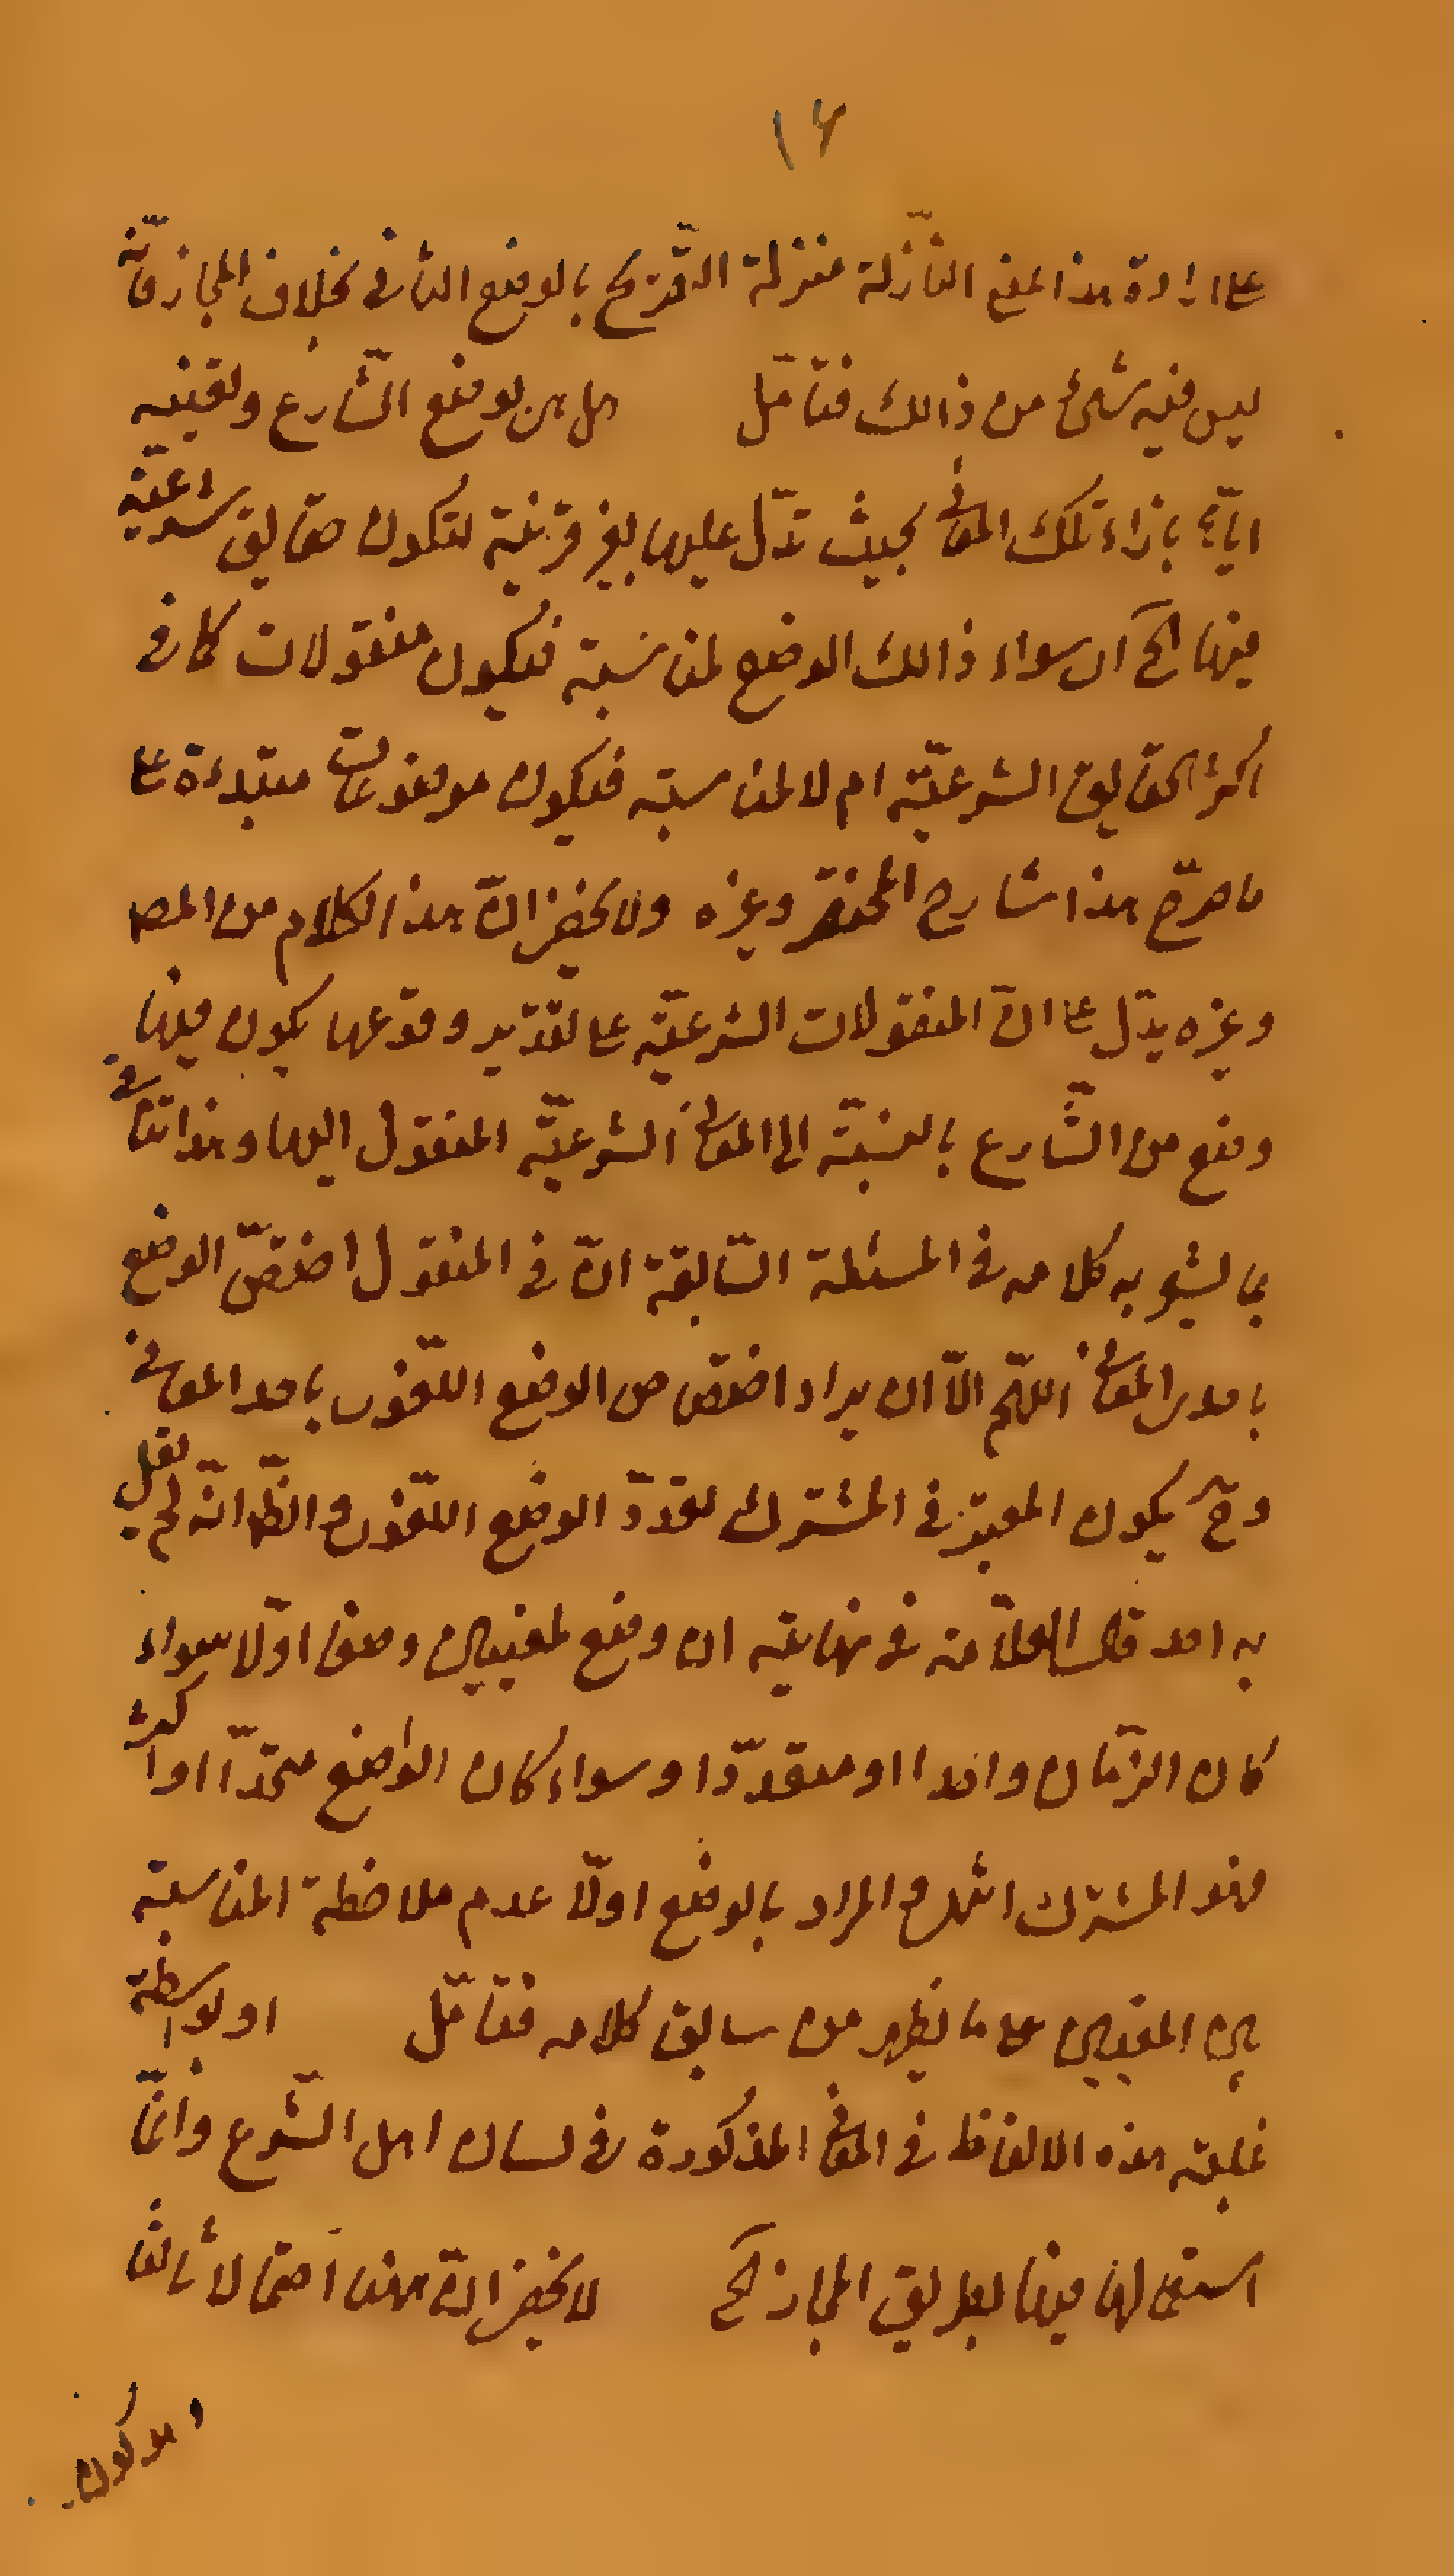 ١٦
على ارادة هذا المعنى النّازلة منزلة التّصريح بالوضع الثانى بخلاف المجاز فانّه
ليس فيه شئ من ذالك فتامّل هل هى بوضع الشّارع وتعيينه
ايّاها بازاء تلك المعانى بحيث تدّل عليها بغير قرينة لتكون حقايق شرعيّة
فيها الخ ان سواء ذالك الوضع لمناسبة فيكون منقولات كما فى
اكثر الحقايق الشرعيّة ام لا لمناسبة فيكون موضوعات مبتدءة على
ما صرّح بهذا شارح المختصر وغيره ولا يخفى انّ هذا الكلام من المصـ
وغيره يدّل على انّ المنقولات الشرعيّة على تقدير وقوعها يكون فيها
وضع من الشّارع بالنسبة الى المعانى الشرعيّة المنقول اليها وهذا ينافى
ما يشعر به كلامه فى المسئلة السّابقة انّ فى المنقول اختصّ الوضع
باحد المعانى اللهّم الّا ان يراد اختصاص الوضع اللغوى باحد المعانى
وحّ يكون المعتبر فى المشترك تعدّد الوضع اللغوى والظّ انّه لم يقل
به احد قال العلّامة فى نهايته ان وضع لمعنيين وضعا اوّلا سواء
كان الزّمان واحدا او متعدّدا وسواء كان الواضع متّحدا او اكثر
فهو المشترك انتهى والمراد بالوضع اولّا عدم ملاحظة المناسبة
بين المعنيين على ما يظهر من سابق كلامه فتامّل او بواسطة
غلبة هذه الالفاظ فى المعانى المذكورة فى لسان اهل الشّرع وانّما
استعمالها فيها بطريق المجاز الخ لا يخفى انّ هنا احتمالا ثالثا